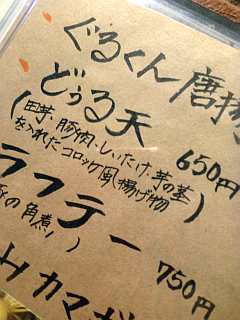 ぐるくん唐揚
どぅる天
(田芋、豚肉、しいたけ、芋の茎
を入れたコロッケ風揚げ物)
650円
ラフテー
の角煮!)
750円
カマ